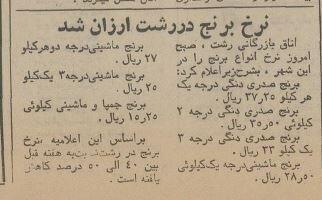 نرخ برنج دررشت ارزان شد
اتاق بازرگانی رشت ، صبح
امروز نرخ انواع برنج را در
این شهر ، بشرح زیر اعلام کرد:
برنج صدری دنگی درجه یک
هر کیلو ۳۵ر۳۷ ریال .
برنج صدری دنگی درجه ۲
کیلوئی ۵۰ر۳۵ ریال .
برنج صدری دنگی درجه ۳
یک کیلو ۳۳ ریال .
برنج ماشینی درجه یک کیلوئی
۵۰ر۲۸ ریال .
برنج ماشینی درجه دو هر کیلو
۲۷ ریال .
برنج ماشینی درجه ۳ یک کیلو
۲۵ ریال .
برنج چمپا و ماشینی کیلوئی
۲۵ر۱۵ ریال .
براساس این اعلامیه ، نرخ
برنج در رشت به هفته قبل
بین ۴۰ الی ۵۰ درصد کاهش
یافته است .